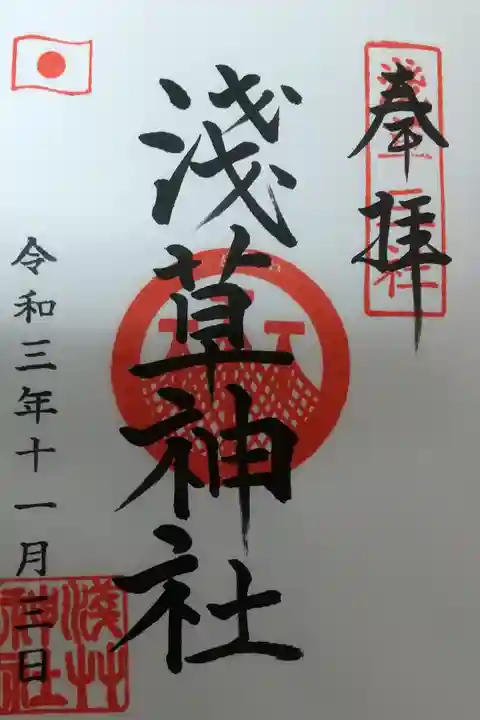 奉拝
淺草神社
令和三年十一月三日
淺草神社